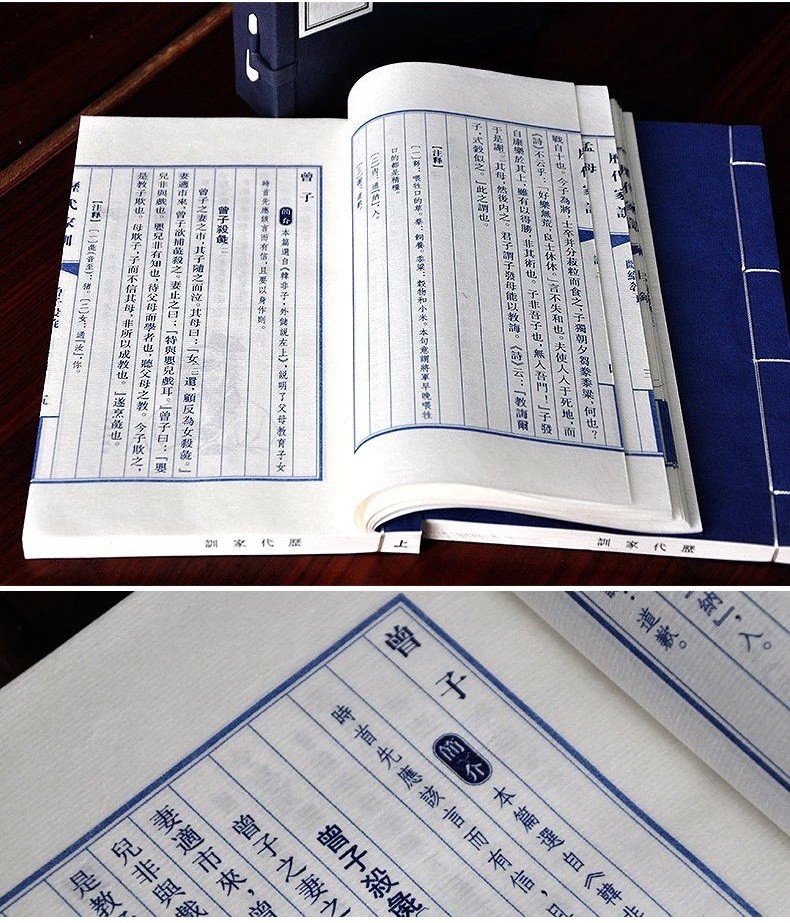 戰自十也。今子為將，士卒并分菽粒而食之，子獨朝夕芻豢黍粱，何也？
《詩》不云乎：『好樂無荒，良士休休。』言不失和也。夫使人入于死地，而
自康樂於其上，雖有以得勝，非其術也。子非吾子也，無入吾門！』子發
于是謝其母，然後內之。君子謂子發母能以教誨。《詩》云：『教誨爾
子，式穀似之。』此之謂也。
【注釋】
口的都是精糧。
曾子
簡介 本篇選自《韓非子·外儲說左上》，説明了父母教育子女
時首先應該言而有信，且要以身作則。
曾子殺彘
曾子之妻之市，其子隨之而泣。其母曰：『女〔二〕還，顧反為女殺彘。』
妻適市來，曾子欲捕彘殺之。妻止之曰：『特與嬰兒戲耳。』曾子曰：『嬰
兒非與戲也。嬰兒非有知也，待父母而學者也，聽父母之教。今子欺之，
是教子欺也。母欺子，子而不信其母，非所以成教也。』遂烹彘也。
【注釋】
〔一〕彘（音至）：豬。〔二〕女：通『汝』，你。
歷代家訓
歷代家訓
上
歷代家訓
納』，入。
道歉。
曾子
簡介
本篇選自《韓非
時首先應該言而有信，且
曾子殺彘
曾子之妻之
妻適市來，曾
兒非與戲
是教子